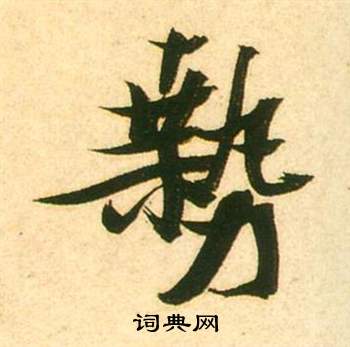 勢
词典网